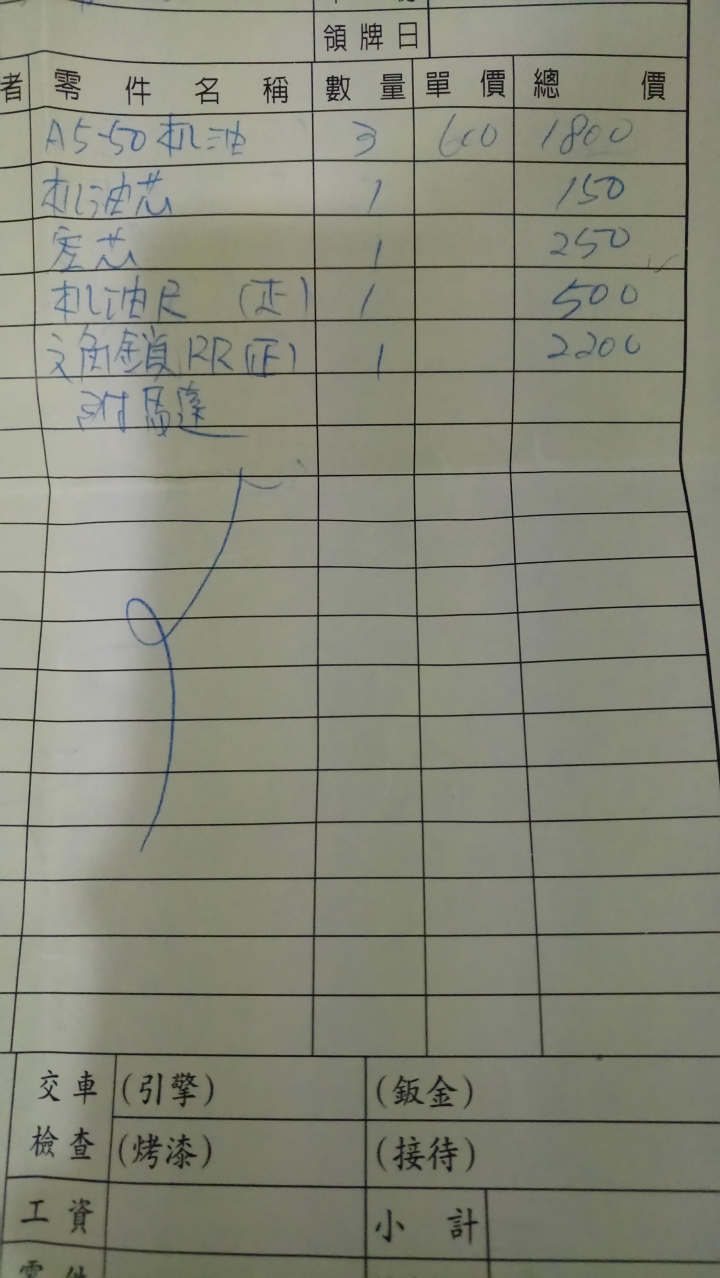 領牌日
者 零件名稱 數量 單價 總價
A5-50机油 3 600 1800
机油芯 1 150
空芯 1 250
机油尺 (正) 1 500
文角鎖 RR (正) 1 2200
附馬達
交車檢查 (引擎) (鈑金)
(烤漆) (接待)
工資 小計
零件